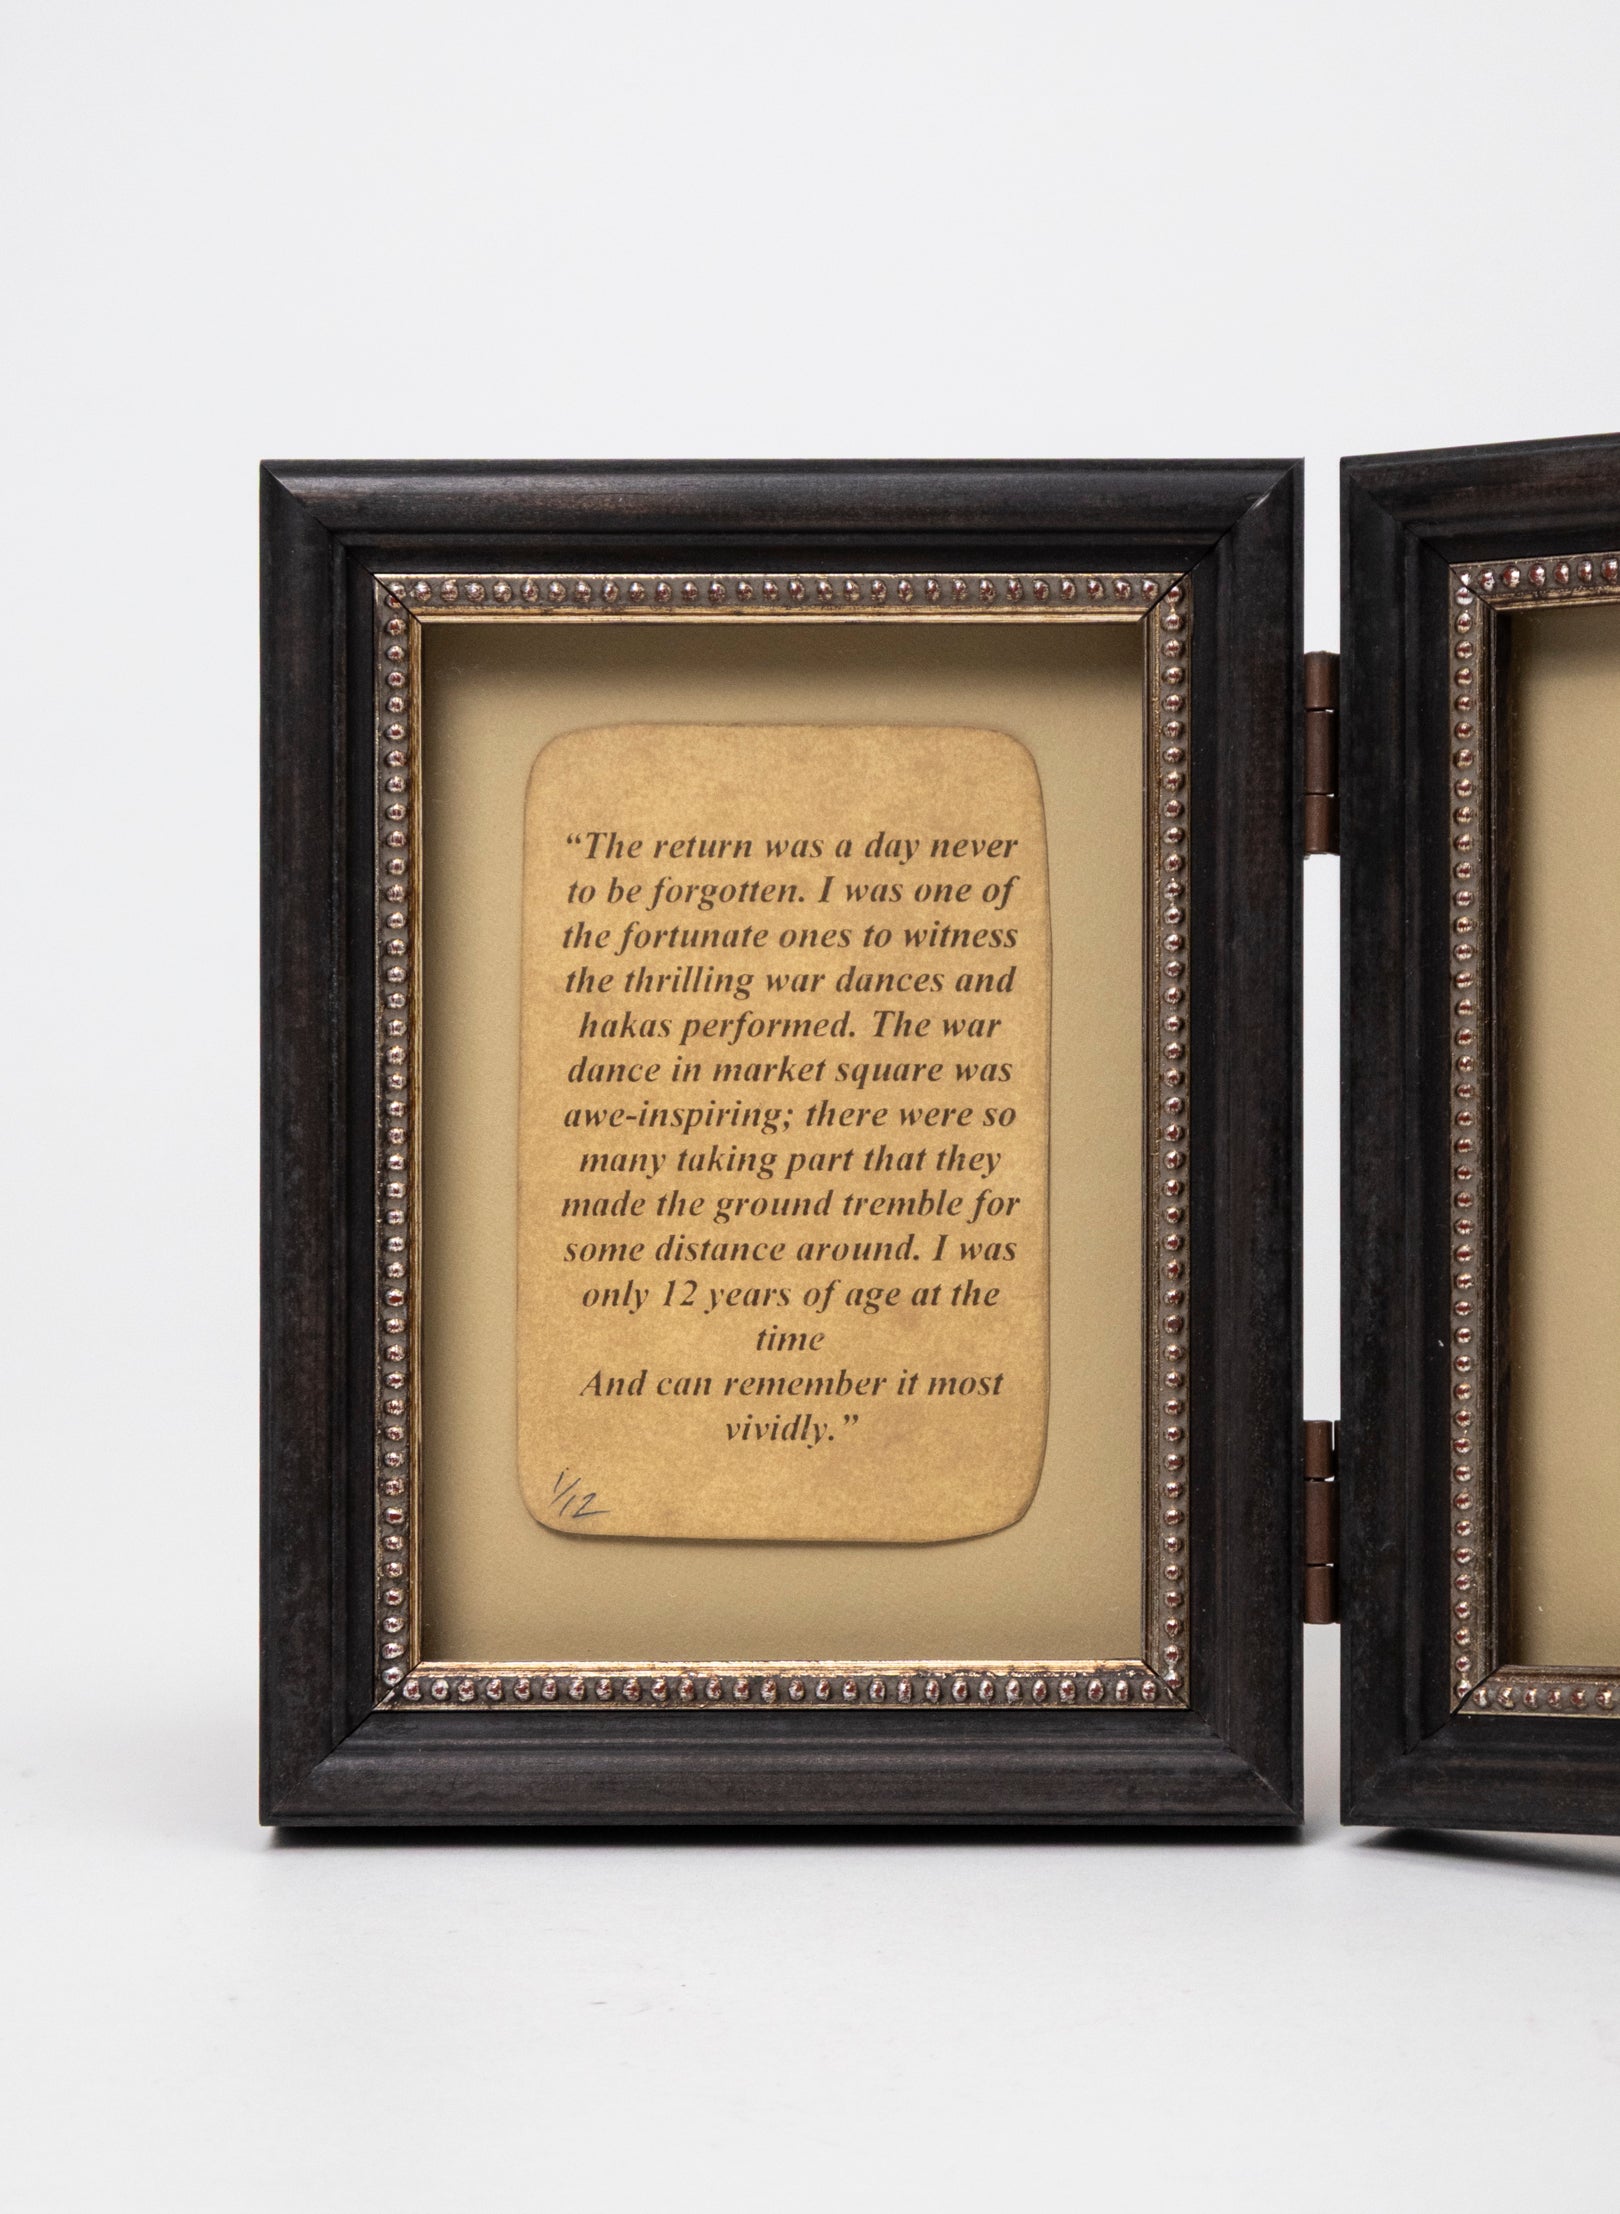 “The return was a day never
to be forgotten. I was one of
the fortunate ones to witness
the thrilling war dances and
hakas performed. The war
dance in market square was
awe-inspiring; there were so
many taking part that they
made the ground tremble for
some distance around. I was
only 12 years of age at the
time
And can remember it most
vividly.”
1/12